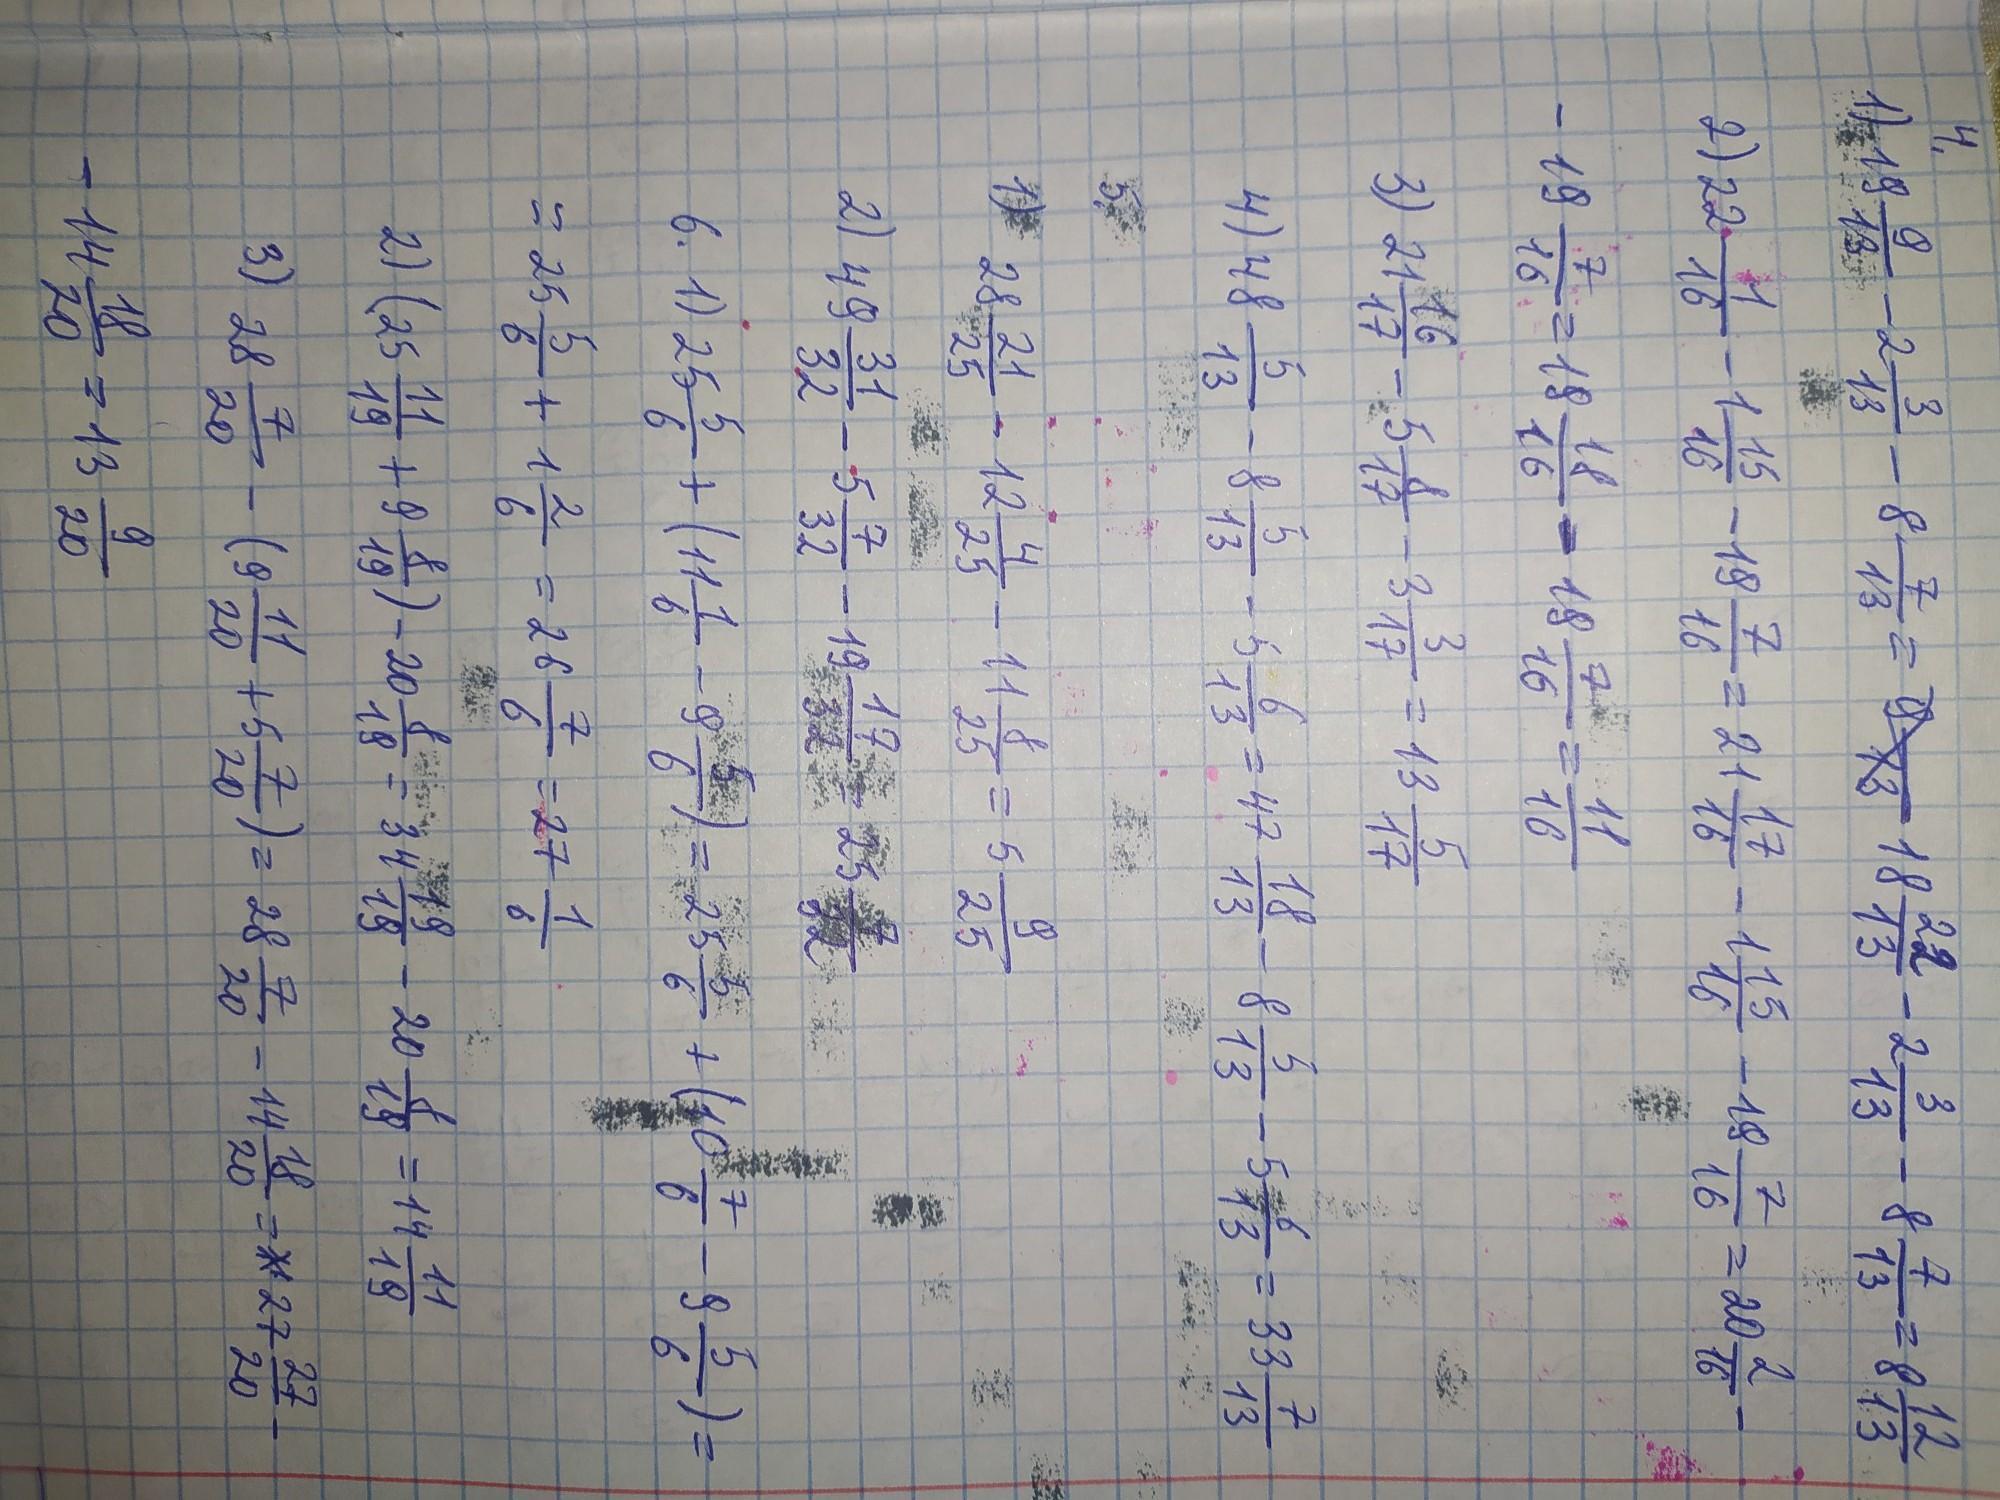 4.
1) 19 9/13 - 2 3/13 - 8 7/13 = 18 22/13 - 2 3/13 - 8 7/13 = 8 12/13
2) 22 1/16 - 1 15/16 - 19 7/16 = 21 17/16 - 1 15/16 - 19 7/16 = 20 2/16 -
- 19 7/16 = 19 18/16 - 19 7/16 = 11/16
3) 21 16/17 - 5 8/17 - 3 3/17 = 13 5/17
4) 48 5/13 - 8 5/13 - 5 6/13 = 47 18/13 - 8 5/13 - 5 6/13 = 33 7/13
5.
1) 28 21/25 - 12 4/25 - 11 8/25 = 5 9/25
2) 49 31/32 - 5 7/32 - 19 17/32 = 25 7/32
6. 1) 25 5/6 + (11 1/6 - 9 5/6) = 25 5/6 + (10 7/6 - 9 5/6) =
= 25 5/6 + 1 2/6 = 26 7/6 = 27 1/6
2) (25 11/19 + 9 8/19) - 20 8/19 = 34 19/19 - 20 8/19 = 14 11/19
3) 28 7/20 - (9 11/20 + 5 7/20) = 28 7/20 - 14 18/20 = 27 27/20 -
- 14 18/20 = 13 9/20